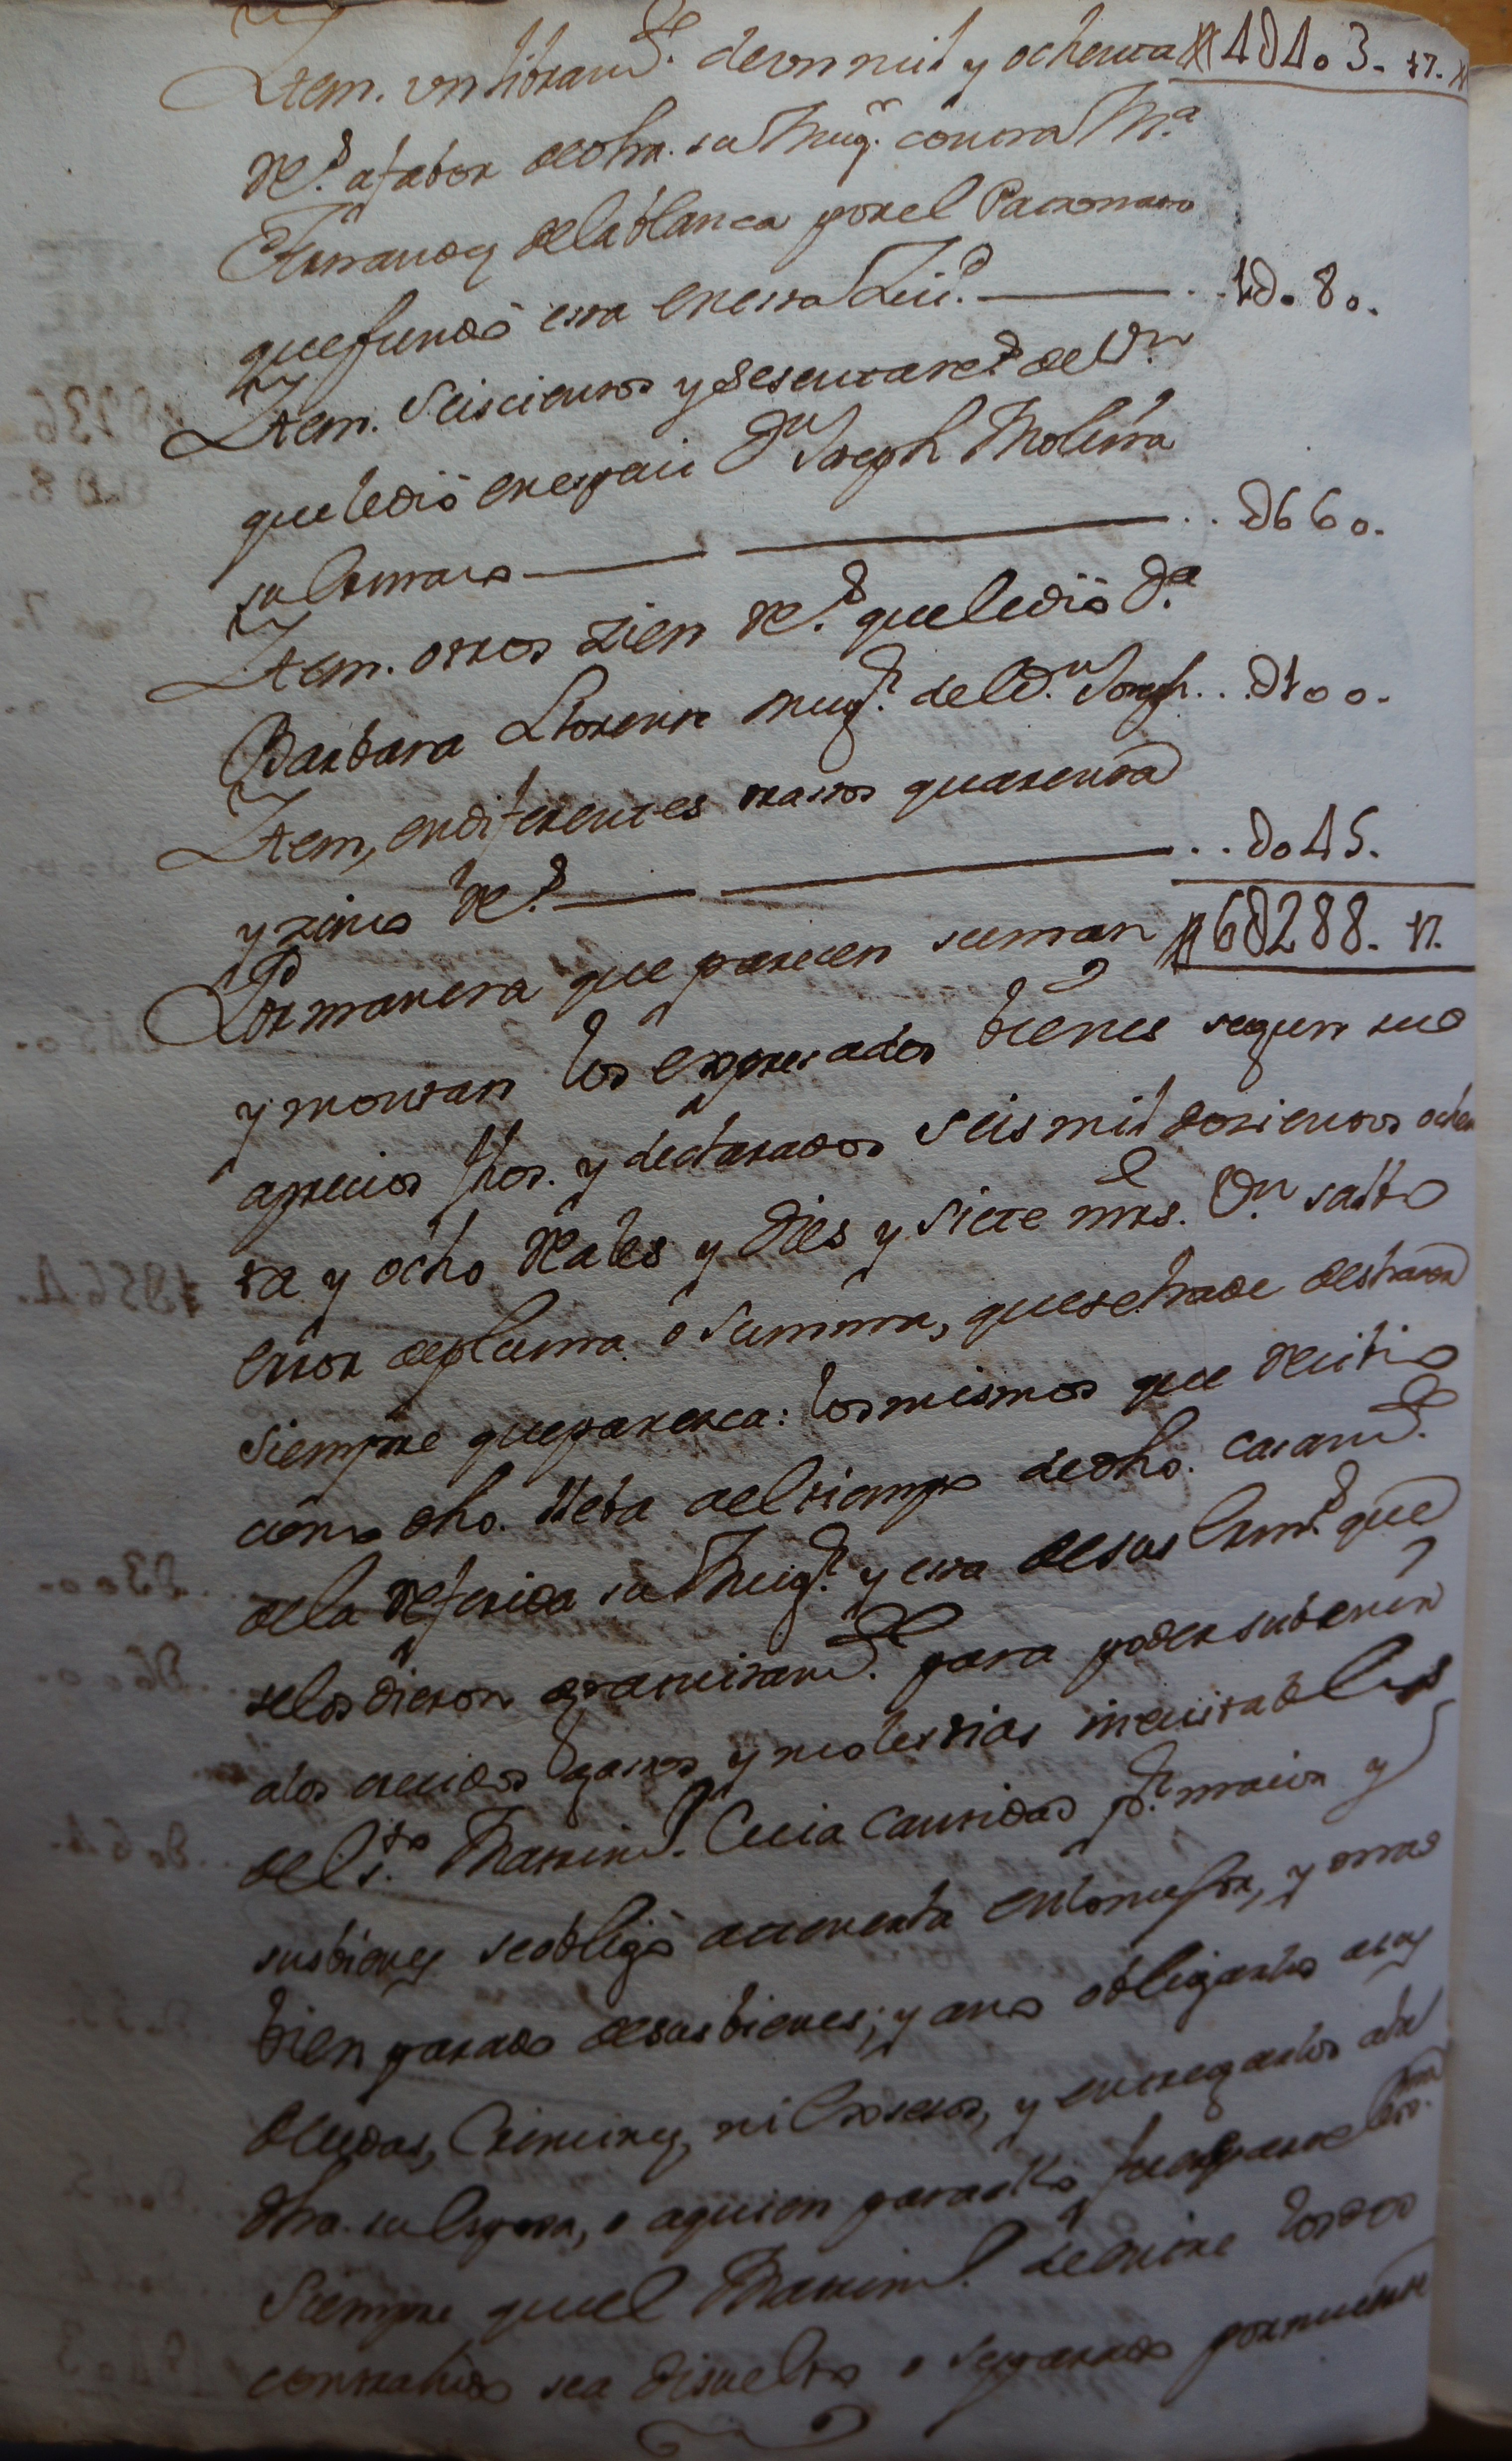 Item. un libram.to de un mil y ochenta #4D4o3. 17. #
R.s a fabor de dha. su Mug.r contra M.a
Fernandez de la blanca por el Patronato
que fundó esta en esta Ziu.d ——— .. 1D.8o.
Item. Seiscientos y sesenta r.s de V.n
que le dió en espezie D.n Joseph Molina
su hermano ——— ——— .. D66o.
Item. otros zien R.s que le dió D.a
Barbara Llorente mug.r del D.n Joseph .. D1oo.
Item, en diferentes trastos quarenta
y zinco R.s ——— ——— .. Do45.
Por manera que parecen suman #6D288. 17.
y montan los expresados bienes segun sus
aprecios fhos. y declarados seis mil doscientos ochen
ta y ocho Reales y Dies y Siete mrs. V.n salbo
error de pluma o Summa, que se ha de desharer
siempre que paresca: los mismos que recibio
como dho. lleba al tiempo de dho. casam.to
de la referida su Mug.r y esta de sus herm.s que
se los dieron graciosam.te para poder subvenir
a los crecidos gastos y molestias inevitables
del s.to Matrim.o Cuia cantidad p.r maior y
sus bienes se obligó a tenerla en lo mejor, y mas
bien parado de sus bienes; y a no obligarlos a sus
deudas, Crimines, ni Excesos, y entregarlos a la
dha. su Esposa, o a quien para ello fuere parte lexma.
Siempre que el Matrim.o de entre los dos
contrahido sea disuelto o separado por muerte